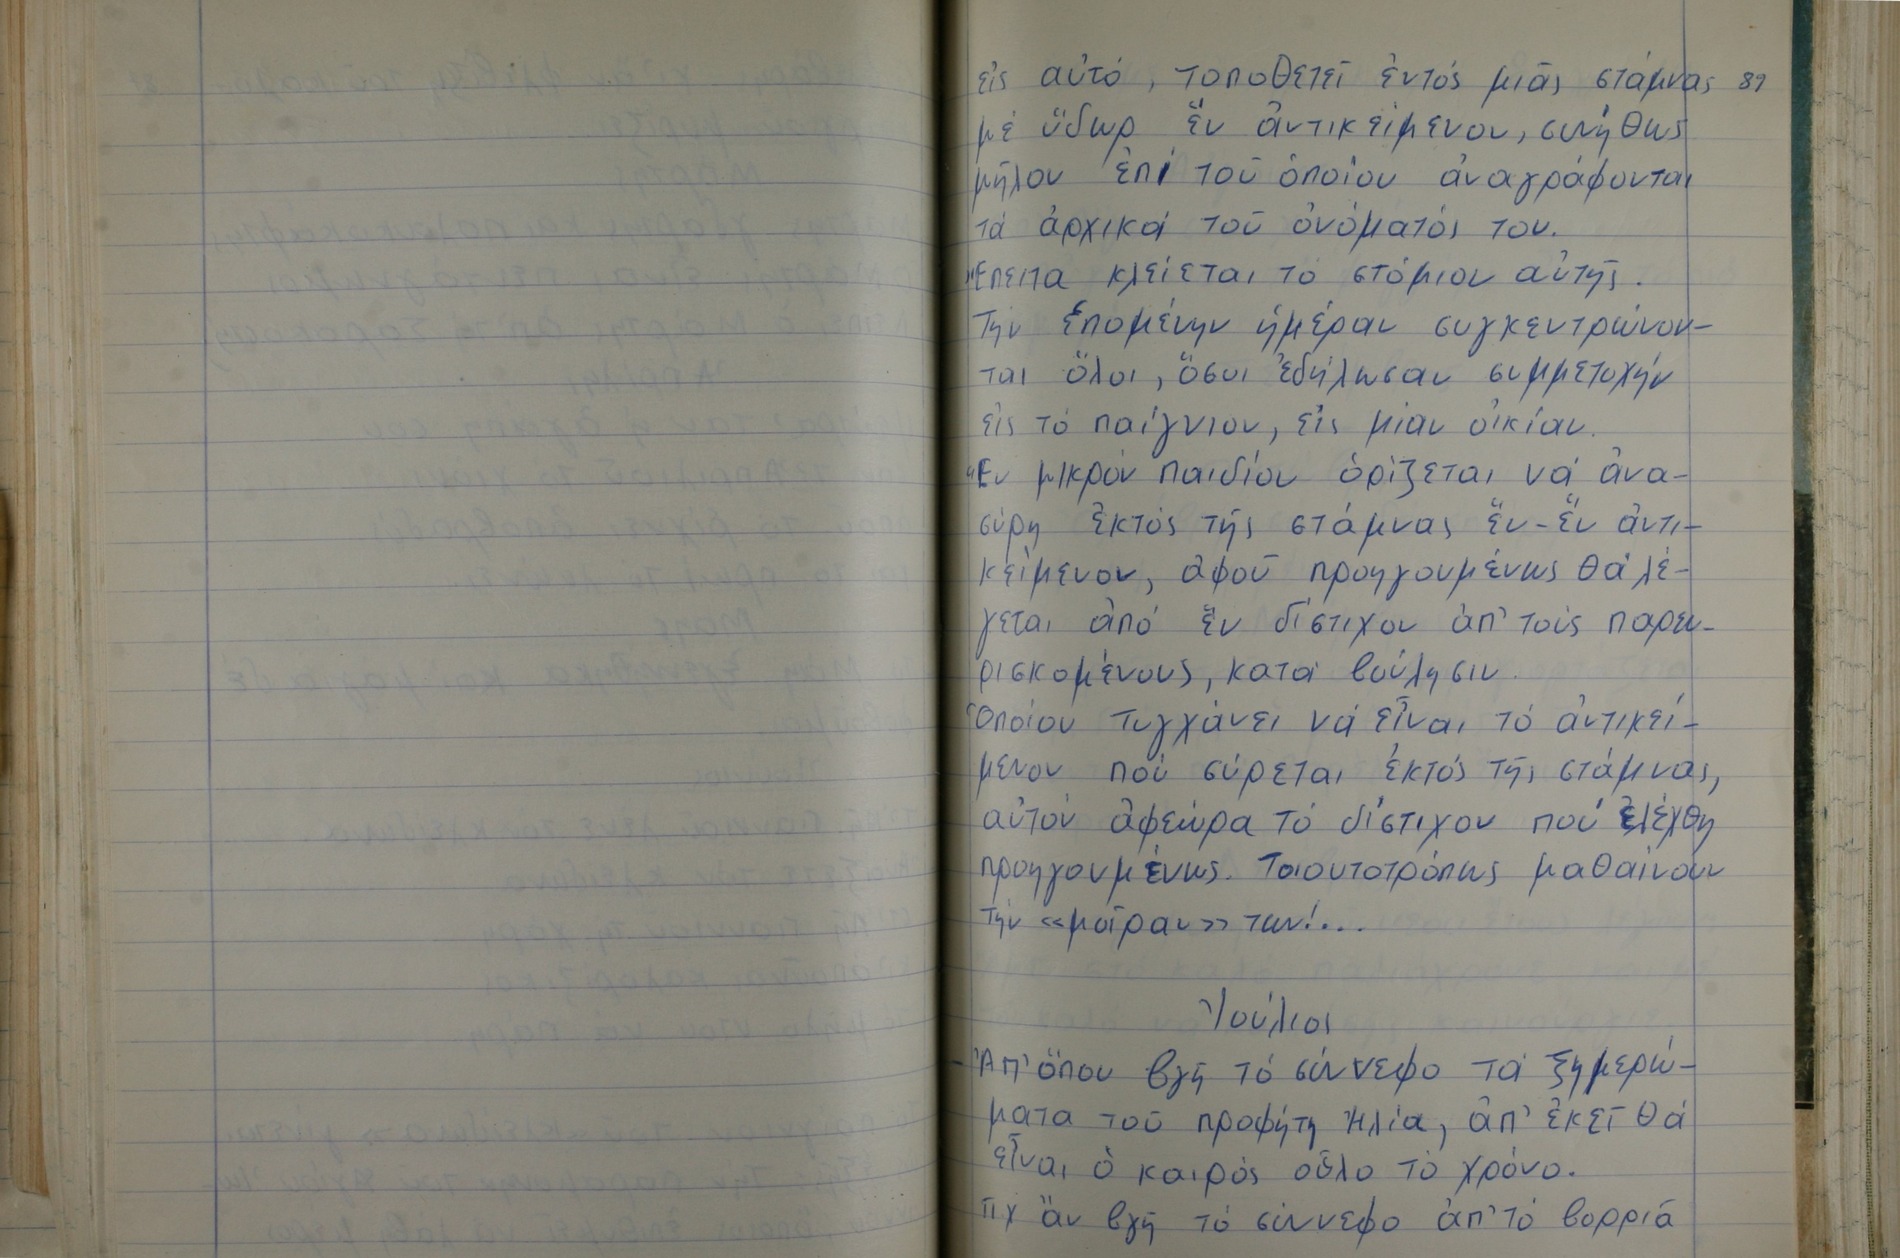 εἰς αὐτό, τοποθετεῖ ἐντός μιᾶς στάμνας 89
μέ ὕδωρ ἕν ἀντικείμενον, συνήθως
μῆλον ἐπί τοῦ ὁποίου ἀναγράφονται
τά ἀρχικά τοῦ ὀνόματός του.
Ἔπειτα κλείεται τό στόμιον αὐτῆς.
Τήν ἑπομένην ἡμέραν συγκεντρώνον-
ται ὅλοι, ὅσοι ἐδήλωσαν συμμετοχήν
εἰς τό παίγνιον, εἰς μίαν οἰκίαν.
Ἕν μικρόν παιδίον ὁρίζεται νά ἀνα-
σύρη ἐκτός τῆς στάμνας ἕν-ἕν ἀντι-
κείμενον, ἀφοῦ προηγουμένως θά λέ-
γεται ἀπό ἕν δίστιχον ἀπ' τούς παρευ-
ρισκομένους, κατά βούλησιν.
Ὁποίου τυγχάνει νά εἶναι τό ἀντικεί-
μενον πού σύρεται ἐκτός τῆς στάμνας,
αὐτόν ἀφεώρα τό δίστιχον πού ἐλέχθη
προηγουμένως. Τοιουτοτρόπως μαθαίνουν
τήν «μοῖραν» των!...
Ἰούλιος
- Ἀπ' ὅπου βγῆ τό σύννεφο τά ξημερώ-
ματα τοῦ προφήτη Ἠλία, ἀπ' ἐκεῖ θά
εἶναι ὁ καιρός οὖλο τό χρόνο.
πχ ἄν βγῆ τό σύννεφο ἀπ' τό βορριᾶ